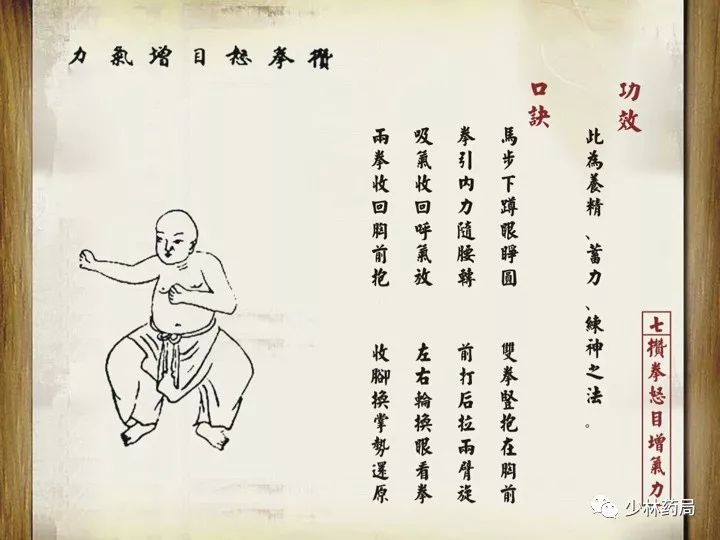 攢拳怒目增氣力
七攢拳怒目增氣力
功效
此為養精、蓄力、練神之法。
口訣
馬步下蹲眼睜圓 雙拳豎抱在胸前
拳引内力隨腰轉 前打后拉兩臂旋
吸氣收回呼氣放 左右輪換眼看拳
兩拳收回胸前抱 收腳換掌勢還原
少林药局